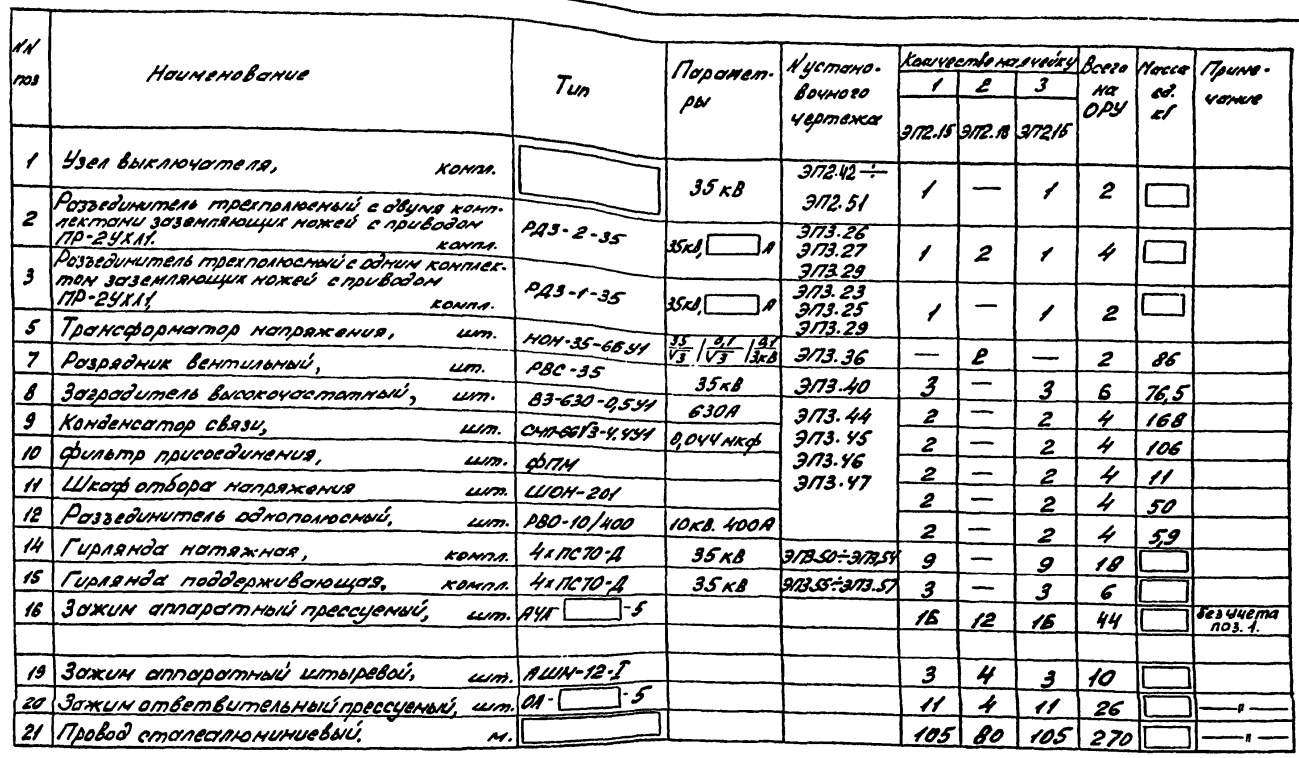 NN поз Наименование Тип Парамет-ры N устано-вочного чертежа Количество на ячейку Всего на ОРУ Масса ед. кГ Приме-чание
1 2 3
ЭП2.15 ЭП2.18 ЭП2.15
1 Узел выключателя, компл. 35 кВ ЭП2.42÷ ЭП2.51 1 — 1 2
2 Разъединитель трехполюсный с двумя комп-
лектами заземляющих ножей с приводом
ПР-2УХЛ1. компл. РДЗ-2-35 35кВ, А ЭП3.26 ЭП3.27 ЭП3.29 1 2 1 4
3 Разъединитель трехполюсный с одним комплек-
том заземляющих ножей с приводом
ПР-2УХЛ1, компл. РДЗ-1-35 35кВ, А ЭП3.23 ЭП3.25 ЭП3.29 1 — 1 2
5 Трансформатор напряжения, шт. НОМ-35-66У1 35/√3 / 0,1/√3 / 0,1/3кВ ЭП3.36 — 2 — 2 86
7 Разрядник вентильный, шт. РВС-35 35кВ ЭП3.40 3 — 3 6 76,5
8 Заградитель высокочастотный, шт. ВЗ-630-0,5У1 630А ЭП3.44 2 — 2 4 168
9 Конденсатор связи, шт. 0,044 мкф ЭП3.45 2 — 2 4 106
10 Фильтр присоединения, шт. ФПМ ЭП3.46 2 — 2 4 11
11 Шкаф отбора напряжения шт. ШОН-201 ЭП3.47 2 — 2 4 50
12 Разъединитель однополюсный, шт. РВО-10/400 10кВ. 400А 2 — 2 4 5,9
14 Гирлянда натяжная, компл. 4×ПС70-Д 35 кВ ЭП3.50÷ЭП3.54 9 — 9 18
15 Гирлянда поддерживающая, компл. 4×ПС70-Д 35 кВ ЭП3.55÷ЭП3.57 3 — 3 6
16 Зажим аппаратный прессуемый, шт. -5 16 12 16 44 без учета поз. 1.
19 Зажим аппаратный штыревой, шт. АШМ-12-I 3 4 3 10
20 Зажим ответвительный прессуемый, шт. ОА- -5 11 4 11 26 —"—
21 Провод сталеалюминиевый. м. 105 80 105 270 —"—